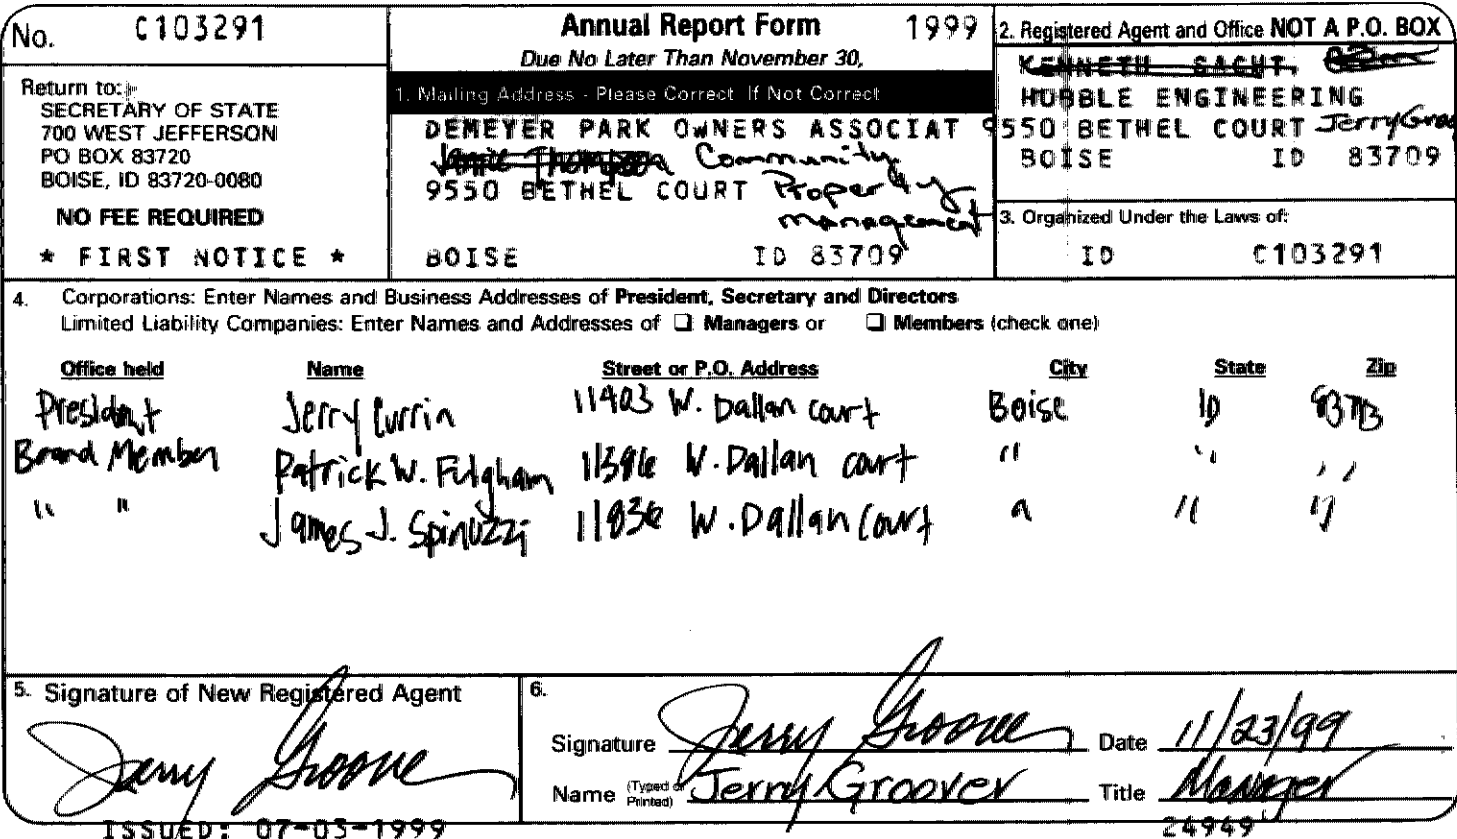 No. C103291
Return to:
SECRETARY OF STATE
700 WEST JEFFERSON
PO BOX 83720
BOISE, ID 83720-0080
NO FEE REQUIRED
* FIRST NOTICE *
Annual Report Form 1999
Due No Later Than November 30,
1. Mailing Address - Please Correct If Not Correct
DEMEYER PARK OWNERS ASSOCIAT
Janie Thompson Community
9550 BETHEL COURT Property
management
BOISE ID 83709
2. Registered Agent and Office NOT A P.O. BOX
KENNETH SACHT,
HUBBLE ENGINEERING
9550 BETHEL COURT Jerry Groo
BOISE ID 83709
3. Organized Under the Laws of:
ID C103291
4. Corporations: Enter Names and Business Addresses of President, Secretary and Directors
Limited Liability Companies: Enter Names and Addresses of ☐ Managers or ☐ Members (check one)
Office held Name Street or P.O. Address City State Zip
President Jerry Currin 11403 W. Dallan court Boise ID 83713
Board Member Patrick W. Fulgham W. Dallan court " " "
" " James J. Spinuzzi 11836 W. Dallan Court " " "
5. Signature of New Registered Agent
Jerry Groover
6.
Signature Jerry Groover Date 11/23/99
Name (Typed or Printed) Jerry Groover Title Manager
ISSUED: 07-03-1999 24949